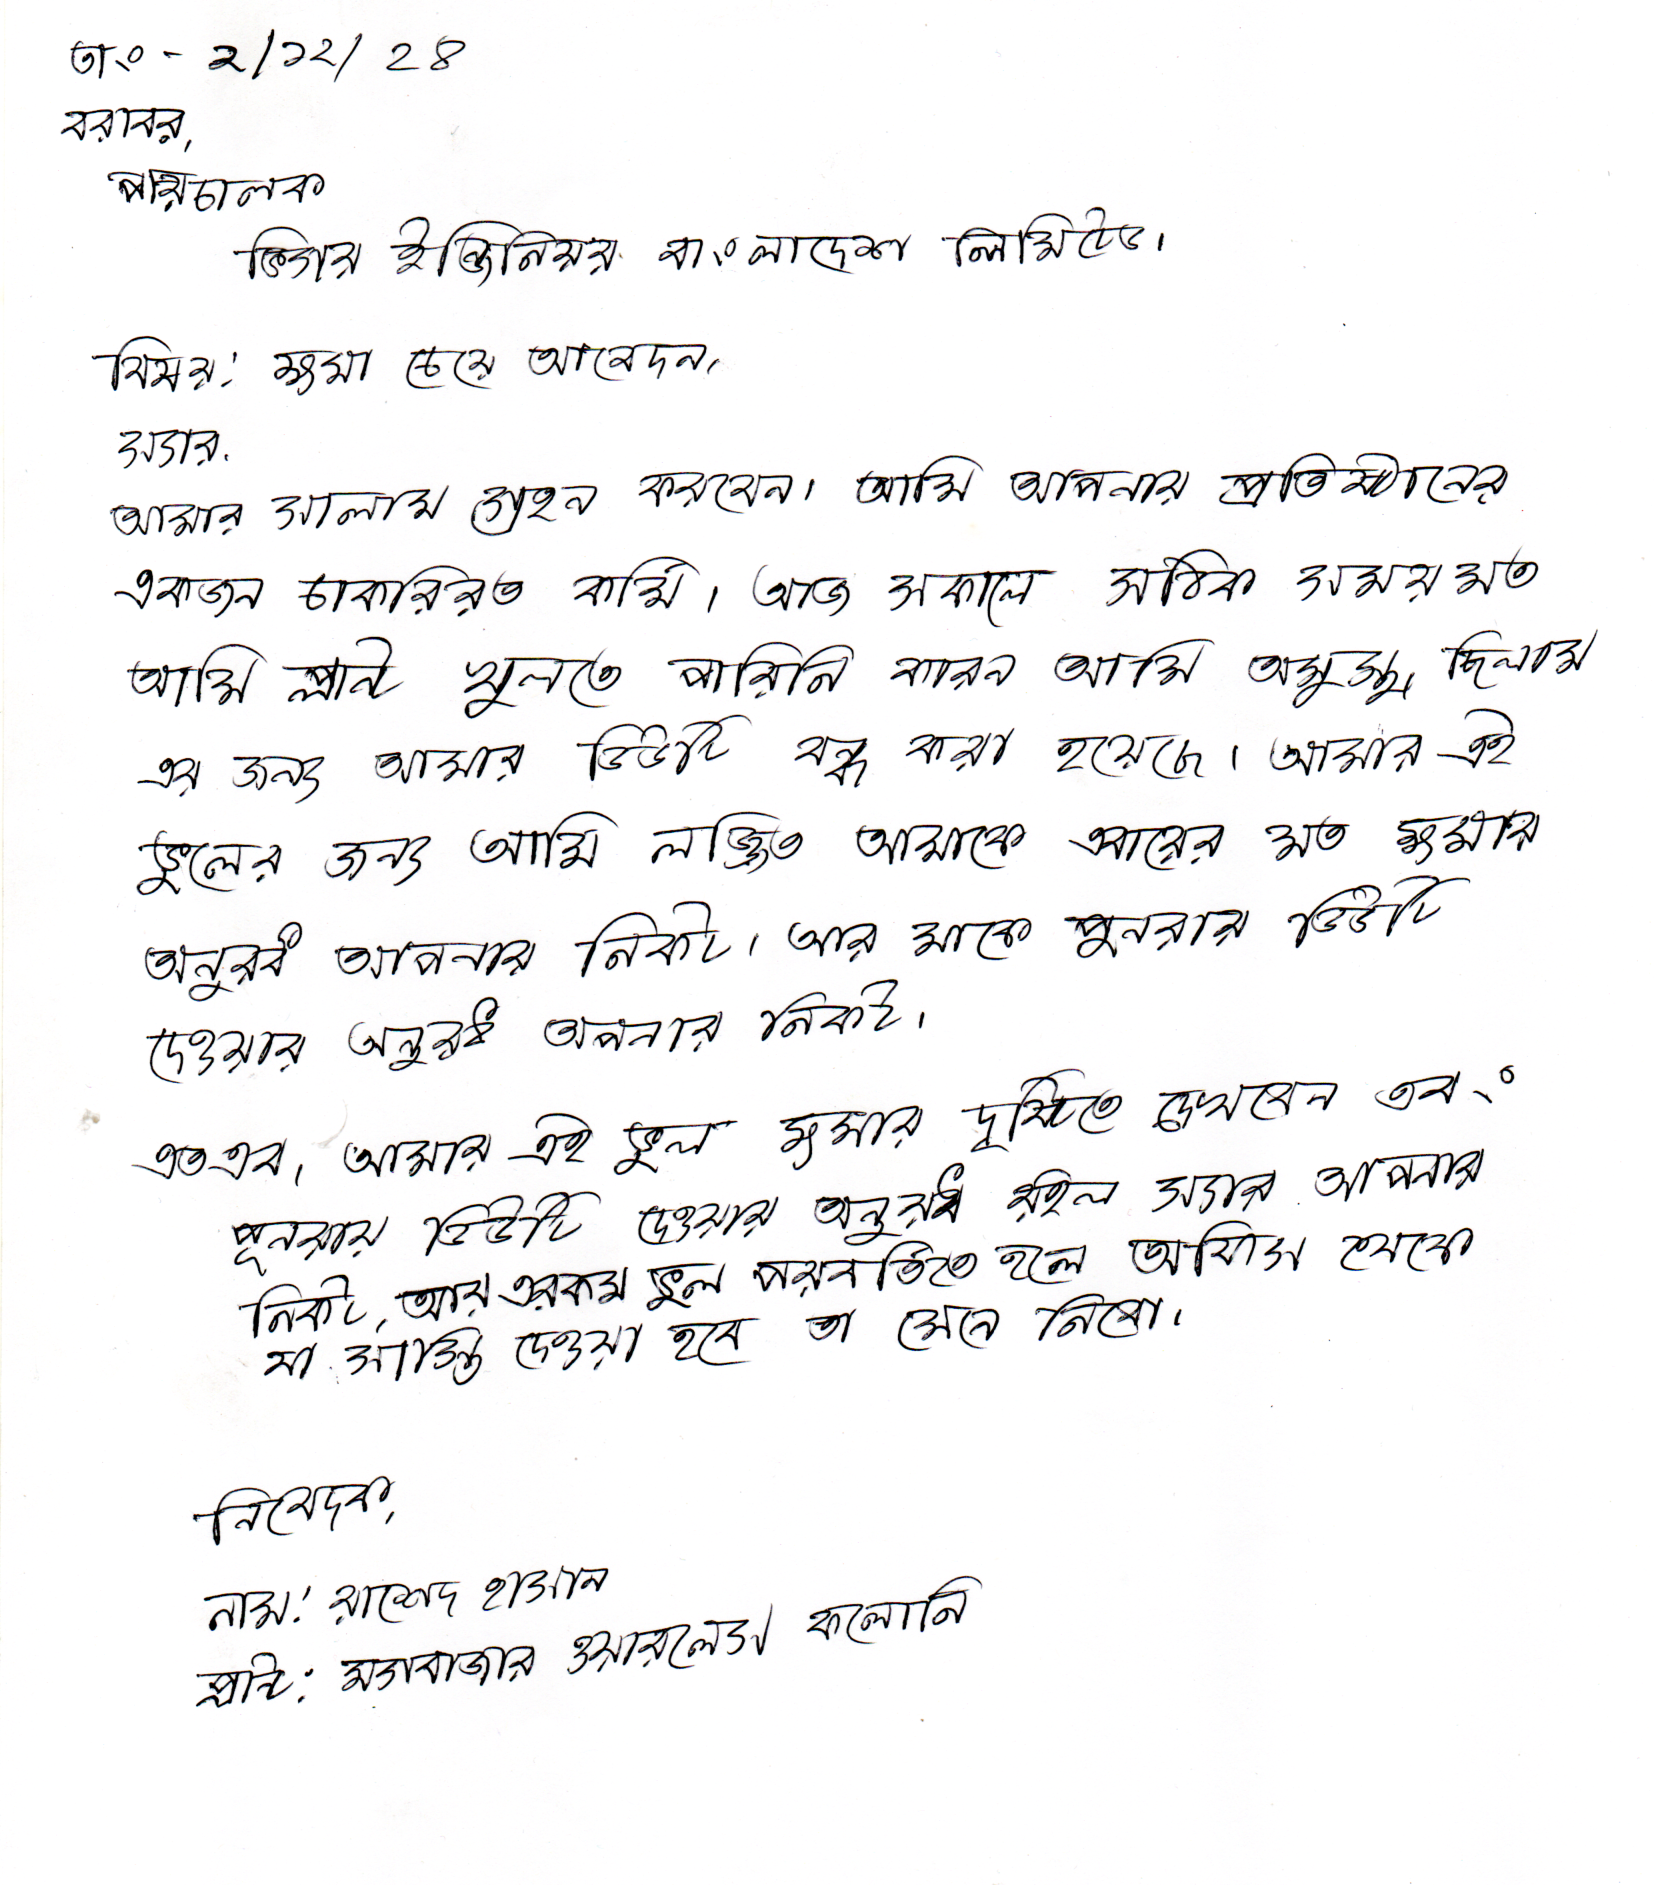 তাং - ২/১২/২৪
বরাবর,
পরিচালক
ভিগার ইঞ্জিনিয়র বাংলাদেশ লিমিটেড।
বিষয়: ক্ষমা চেয়ে আবেদন,
স্যার.
আমার সালাম গ্রহন করবেন। আমি আপনার প্রতিষ্টানের
একজন চাকরিরত কর্মি। আজ সকালে সঠিক সময় মত
আমি প্লান্ট খুলতে পারিনি কারন আমি অসুস্থ, ছিলাম
এর জন্য আমার ডিউটি বন্ধ করা হয়েছে। আমার এই
ভুলের জন্য আমি লজ্জিত আমাকে এবারের মত ক্ষমার
অনুরধ আপনার নিকট। আর মাকে পুনরায় ডিউটি
দেওয়ার অনুরধ অপনার নিকট।
এতএব, আমার এই ভুল ক্ষমার দৃষ্টিতে দেখবেন এবং
পূনরায় ডিউটি দেওয়ার অনুরধ রইল স্যার আপনার
নিকট, আর এরকম ভুল পরবর্তিতে হলে অফিস থেকে
যা সাস্তি দেওয়া হবে তা মেনে নিবো।
নিবেদক,
নাম: রাশেদ হাসান
প্লান্ট: মগবাজার ওয়ারলেস কলোনি